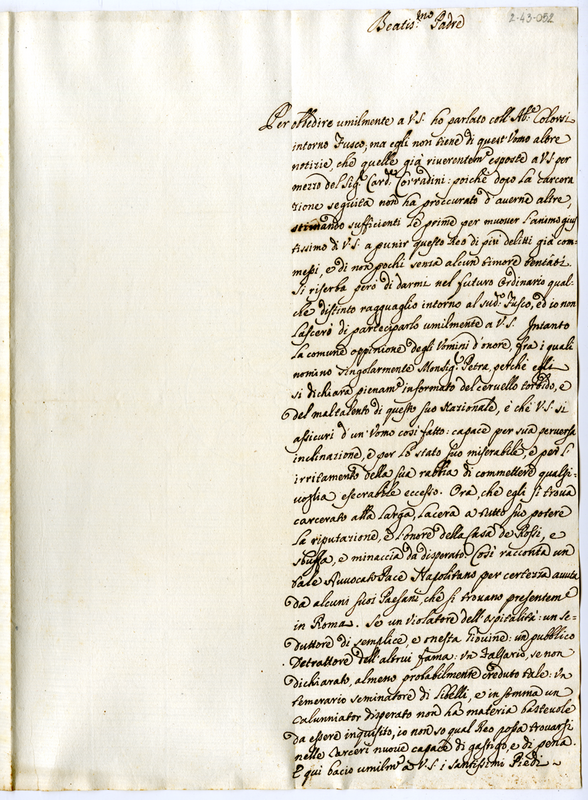 Beatis.mo Padre
2-43-052
Per obbedire umilmente a V.S. ho parlato coll'Ab.e Colorsi
intorno Fusco, ma egli non tiene di quest'Vomo altre
notizie, che quelle già riverentem.e esposte a V.S. per
mezzo del Sig.r Card.le Corradini: poichè dopo la carcera
zione seguita non ha proccurato d'averne altre,
stimando sufficienti le prime per muover l'animo gius
tissimo di V.S. a punir questo Reo di più delitti già com
messi, e di non pochi senza alcun timore tentati.
Si riserba però di darmi nel futuro Ordinario qual-
che distinto ragguaglio intorno al sud.o Fusco, ed io non
lascerò di parteciparlo umilmente a V.S. Intanto
la comune oppinione degli Vomini d'onore, fra i quali
nomino singolarmente Monsig.r Petra, perchè egli
si dichiara pienam.e informato del cervello torbido, e
del maltalento di questo suo Nazionale, è che V.S. si
assicuri d'un'Vomo così fatto: capace per sua perversa
inclinazione, e per lo stato suo miserabile, e per l'
irritamento della sua rabbia di commettere qualsi-
voglia esecrabile eccesso. Ora, che egli si trova
carcerato alla larga, lacera a tutto suo potere
la riputazione, e l'onore della Casa de Rossi, e
sbuffa, e minaccia da disperato. Così racconta un
tale Avvocato Pace Napolitano per certezza avuta
da alcuni suoi Paesani, che si trovano presentem.e
in Roma. Se un violatore dell'ospitalità: un se-
duttore di semplice, e onesta Giovine: un pubblico
Detrattore dell'altrui fama: un Falsario, se non
dichiarato, almeno probabilmente creduto tale: un
temerario seminatore di libelli, e in somma un
calunniator disperato non ha materia bastevole
da essere inquisito, io non so qual Reo possa trovarsi
nelle carceri nuove capace di gastigo, e di pena.
E qui bacio umilm.e a V.S. i santissimi Piedi